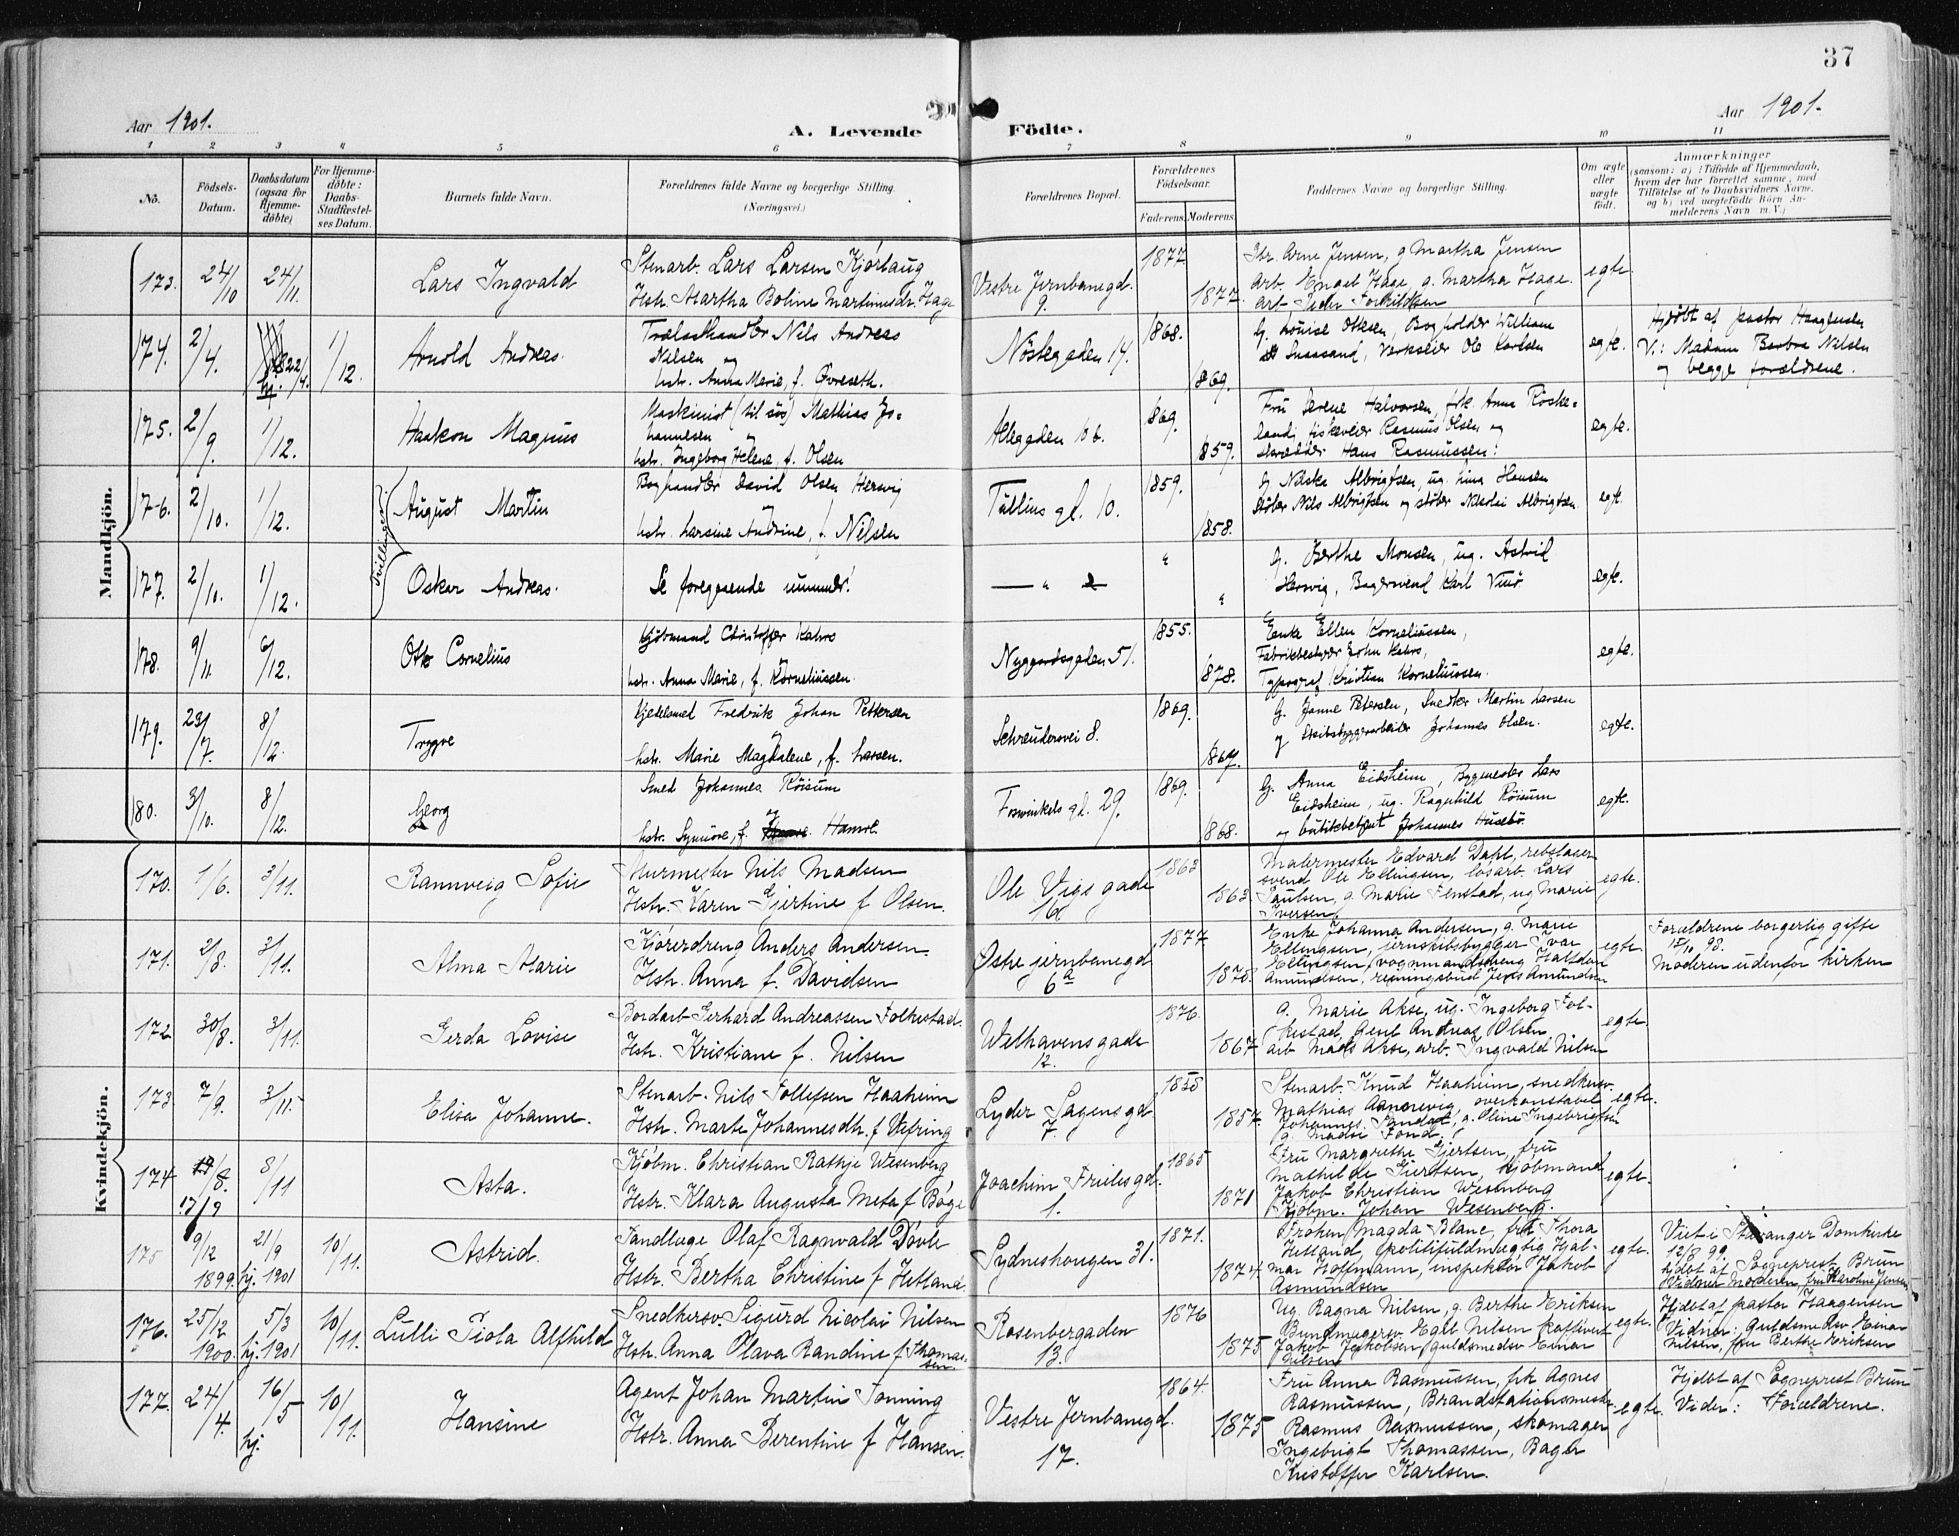 37
Aar 1901.
A. Levende Födte.
Aar 1901.
1 2 3 4 5 6 7 8 9 10 11
No.
Födsels-Datum.
Daabsdatum (ogsaa for Hjemme-döbte)
For Hjemme-döbte: Daabs-Stadfæstel-ses Datum.
Barnets fulde Navn.
Forældrenes fulde Navne og borgerlige Stilling. (Næringsvei.)
Forældrenes Bopæl.
Forældrenes Födselsaar.
Faderens. Moderens.
Faddernes Navne og borgerlige Stilling.
Om ægte eller uægte födt.
Anmærkninger
(saasom: a) i Tilfælde af Hjemmedaab,
hvem der har forrettet samme, med
Tilföielse af to Daabsvidners Navne.
og b) ved uægtefödte Börn An-
melderens Navn m. V.)
Mandkjön.
173. 24/10 24/11. Lars Ingvald
Stenarb. Lars Larsen Kjørlaug
Hstr. Martha Boline Martinusdr. Hage
Vestre Jernbanegd. 9.
1877 1877.
Arne Jensen, g Martha Jensen
arb. Engel Hage g. Martha Hage.
arb Peder
egte.
174. 2/4. hj. 22/4. 1/12. Arnold Andreas.
Trælasthandler Nils Andreas
Nilsen og
hstr. Anna Marie, f. Evreseth.
Nöstegaden 14.
1868. 869.
G. Louise Ottesen, Bogholder William
Snassand, Verkseier Ole Karlsen
egte.
Hjdöbt af pastor Haagensen
V.: Madam Barbra Nilsen
og begge forældrene.
175. 2/9. 1/12. Haakon Magnus
Maskinist (til søs) Mathias Jo=
hannesen og
hstr. Ingeborg Helene, f. Olsen
Allegaden 106.
869. 859.
Fru Serene Halvorsen, frk. Anna Röske=
land, fiskeveier Rasmus Olsen og
skrædder Hans Rasmussen.
egte.
Tvillinger.
176. 2/10. 1/12. August Martin
Boghandler David Olsen Hersvig
og
hstr. Larsine Andrine, f. Nilsen
Tullins gd. 10.
1859. 1858.
G. Nilska Albrigtsen, ug. Lina Hansen
støber Nils Albrigtsen og støber Nikolai Albrigtsen.
egte.
177. 2/10. 1/12. Oskar Andreas.
Se foregaaende nummer!
G. Berthe Monsen, ug. Astrid
Hersvig, Bagersvend Karl
egte.
178. 9/11. 6/12. Otto Cornelius
Kjøbmand Christoffer Kahrs
og
hstr. Anna Marie, f. Korneliussen.
Nygaardsgaden 51.
1855. 878.
Enke Ellen Korneliussen,
Fabrikbestyrer John Kahrs,
Typograf Kristian Korneliussen.
egte.
179. 23/7. 8/12. Trygve
Kjedelsmed Fredrik Johan Pettersen
og
hstr. Marie Magdalene, f. Larsen.
Schreudersvei 8.
1869. 1867.
G. Janne Petersen, Snedker Martin Larsen
og Skibsbyggerarbeider Johannes Olsen.
egte.
180. 3/10. 8/12. Georg
Smed Johannes Röisum
og
hstr. Synnöve, f. Hamre.
Fosswinkels gd. 29.
1869. 1868.
G. Anna Eidsheim, Bygmester Lars
Eidsheim, ug. Ragnhild Röisum
og butikbetjent Johannes Husebö.
egte.
Kvindekjön.
170. 1/6. 3/11. Rannveig Sofie
Murmester Nils Madsen
Hstr. Karen Gjertine f Olsen.
Ole Vigs gade 16
1863 1863.
Malermester Edvard Dahl, rebslager
svend Ole Ellingsen, losarb. Lars
Paulsen, g. Marie Fenstad, ug Marie
Iversen.
egte.
171. 2/8. 3/11. Alma Marie
Kjøredreng Anders Andersen.
Hstr. Anna f. Davidsen
Østre jernbanegd 6a
1877 1878.
Enke Johanna Andersen, g. Marie
Ellingsen, jernskibsbygger Ivar
Ellingsen, vognmandsdreng Halfdan
Amundsen, regningsbud Jens Amundsen
egte.
Forældrene borgerlig gifte
17/10 98.
Moderen udenfor kirken
172 30/8. 3/11. Gerda Lovise
Bordarb. Gerhard Andreassen Folkestad.
Hstr. Kristiane f. Nilsen
Welhavensgade 12.
1876. 1867.
g. Marie Akse, ug. Ingeborg Fol-
kestad, Gent Andreas Olsen
arb Mads Akse, arb. Ingvald Nilsen
egte.
173 7/9. 3/11. Elisa Johanne.
Stenarb. Nils Tollefsen Haaheim
Hstr. Marte Johannesdtr. f Vefring
Lyder Sagens gd 7.
1858 1857.
Stenarb. Knud Haaheim, snedkersv.
Mathias Aanrevig, overkonstabel
Johannes Sandal, g. Oline Ingebrigtsen
g. Madse Fond.
egte.
174 17/9 3/11 Asta.
Kjøbm. Christian Rathje Wesenberg
Hstr. Klara Augusta Meta f Bøge
Joachim Frielesgd. 1.
1865 1871
Fru Margrethe Gjertsen, fru
Mathilde Gjertsen, kjøbmand
Jakob Christian Wesenberg
Kjøbm. Johan Wesenberg.
egte.
175 9/12 1899. 21/9 hj. 1901 10/11. Astrid.
Tandlæge Olaf Ragnvald Dövle
Hstr. Bertha Christine f Hetland
Sydneshougen 31.
1871. 1874.
Frøken Magda Blanc, frk Thora
Hetland, politifuldmægtig Hjal-
mar Hoffmann, inspektør Jakob
Asmundsen
egte.
Viet i Stavanger Domkirke
12/8 99.
hjdøbt af Sogneprest Brun
Vidner Moderen, fru Karoline Jensen
176. 25/12 1900. 5/3 hj. 1901 10/11. Lulli Piola Alfhild
Snedkersv. Sigurd Nicolai Nilsen
Hstr. Anna Olava Randine f Thomas-
sen.
Rosenbergaden 13.
1876 1875
Ug. Ragna Nilsen, g. Berthe Eriksen
Bundmagersv. Egil Nilsen
Jakob Jakobsen, guldsmedsv Einar
Nilsen
egte.
Hjdøbt af pastor Haagensen
Vidner: guldsmedsv Einar
Nilsen, fru Berthe Eriksen
177. 24/4. 16/5 hj. 10/11. Hansine
Agent Johan Martin Tonning
Hstr. Anna Berentine f Hansen.
Vestre Jernbanegd. 17.
1864. 1875
Fru Anna Rasmussen, frk Agnes
Rasmussen, Brandstationsmester
Rasmus Rasmussen, skomager
Ingebrigt Thomassen, Bager
Kristoffer Karlsen.
egte.
Hjdøbt af Sogneprest Brun
Vidner: Forældrene.